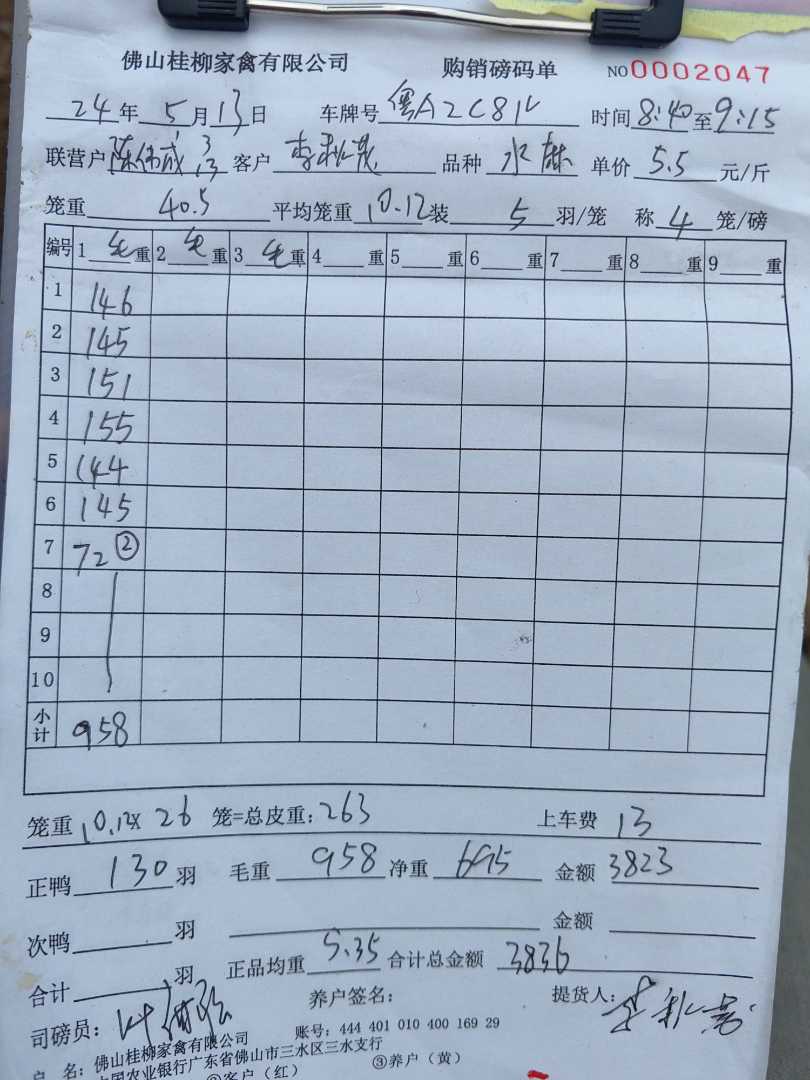 佛山桂柳家禽有限公司 购销磅码单 NO0002047
24年5月13日 车牌号 粤A2C81V 时间8:40至9:15
联营户 陈伟成 客户 李秋茂 品种 水麻 单价 5.5 元/斤
笼重 40.5 平均笼重 10.12 装 5 羽/笼 称 4 笼/磅
编号 1毛重 2毛重 3毛重 4重 5重 6重 7重 8重 9重
1 146
2 145
3 151
4 155
5 144
6 145
7 72②
8
9
10
小计 958
笼重 10.12× 26 笼=总皮重:263 上车费 13
正鸭 130 羽 毛重 958 净重 695 金额 3823
次鸭 羽 金额
合计 羽 正品均重 5.35 合计总金额 3836
司磅员: 养户签名: 提货人:
户 名:佛山桂柳家禽有限公司 账号:444 401 010 400 169 29
中国农业银行广东省佛山市三水区三水支行
②客户(红) ③养户(黄)